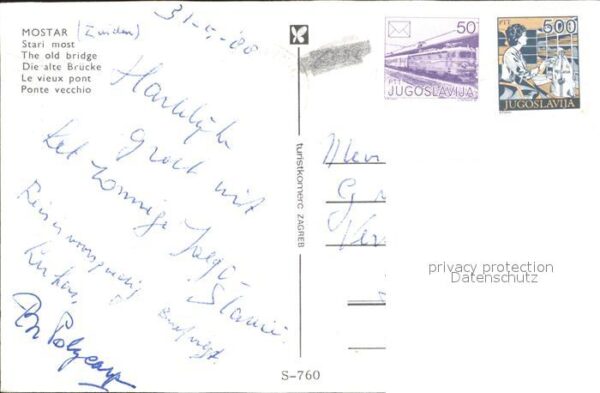 MOSTAR (Zuiden)
Stari most
The old bridge
Die alte Brücke
Le vieux pont
Ponte vecchio
Hartelijk
groet uit
het zonnige Joego
Slavië.
Reis is voorspoedig
Br Polycarp
turistkomerc ZAGREB
S-760
50
PTT
JUGOSLAVIJA
PTT
500
JUGOSLAVIJA
privacy protection
Datenschutz